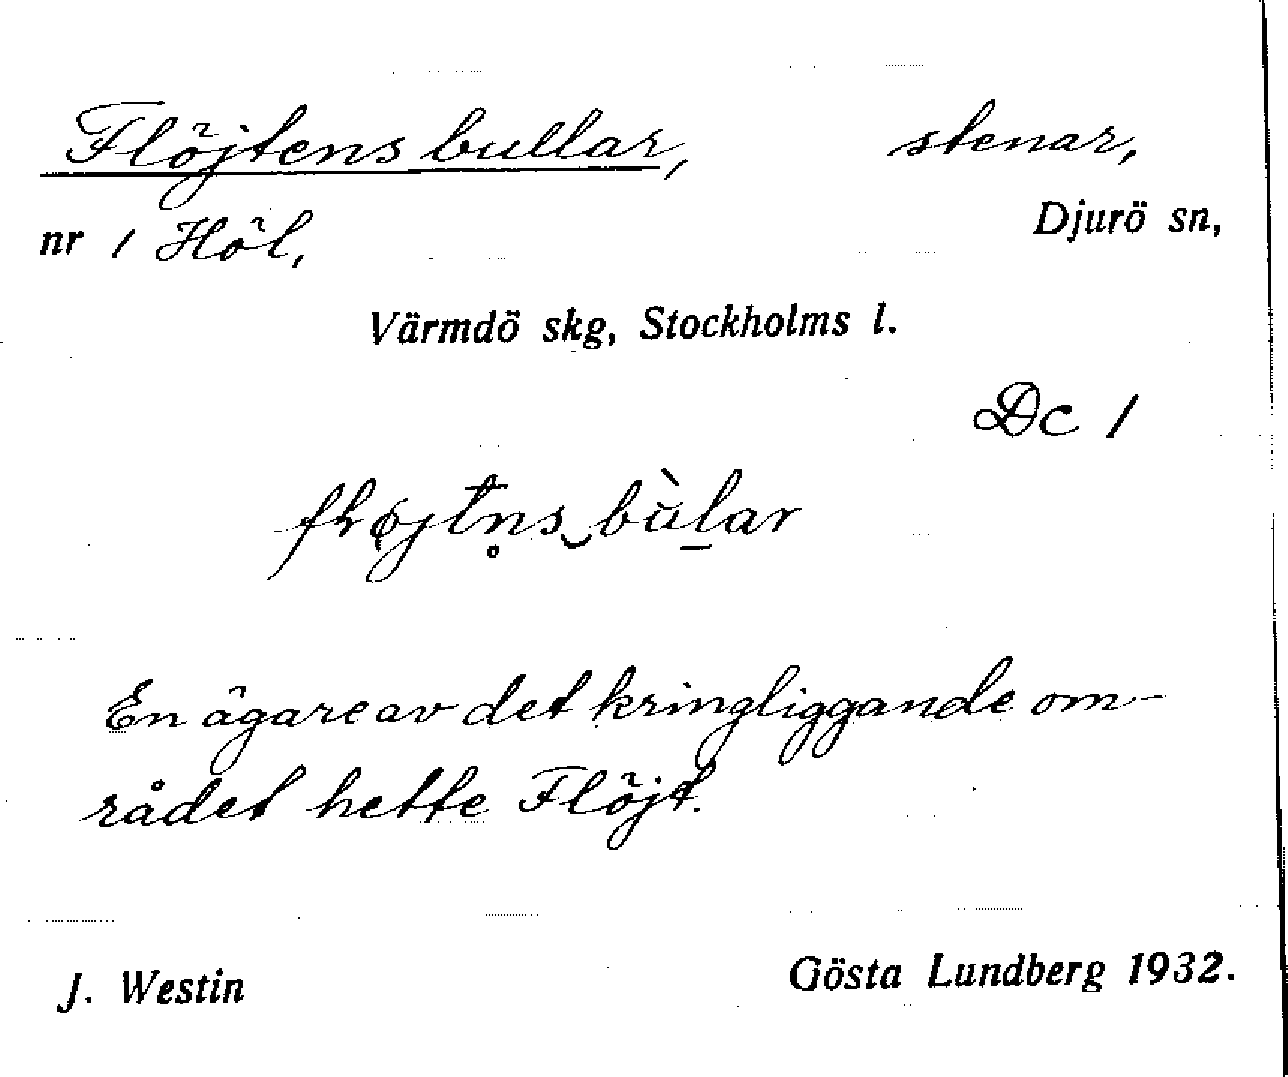 Flöjtens bullar, stenar,
nr 1 Höl, Djurö sn,
Värmdö skg, Stockholms l.
Dc 1
En ägare av det kringliggande om-
rådet hette Flöjt.
J. Westin Gösta Lundberg 1932.